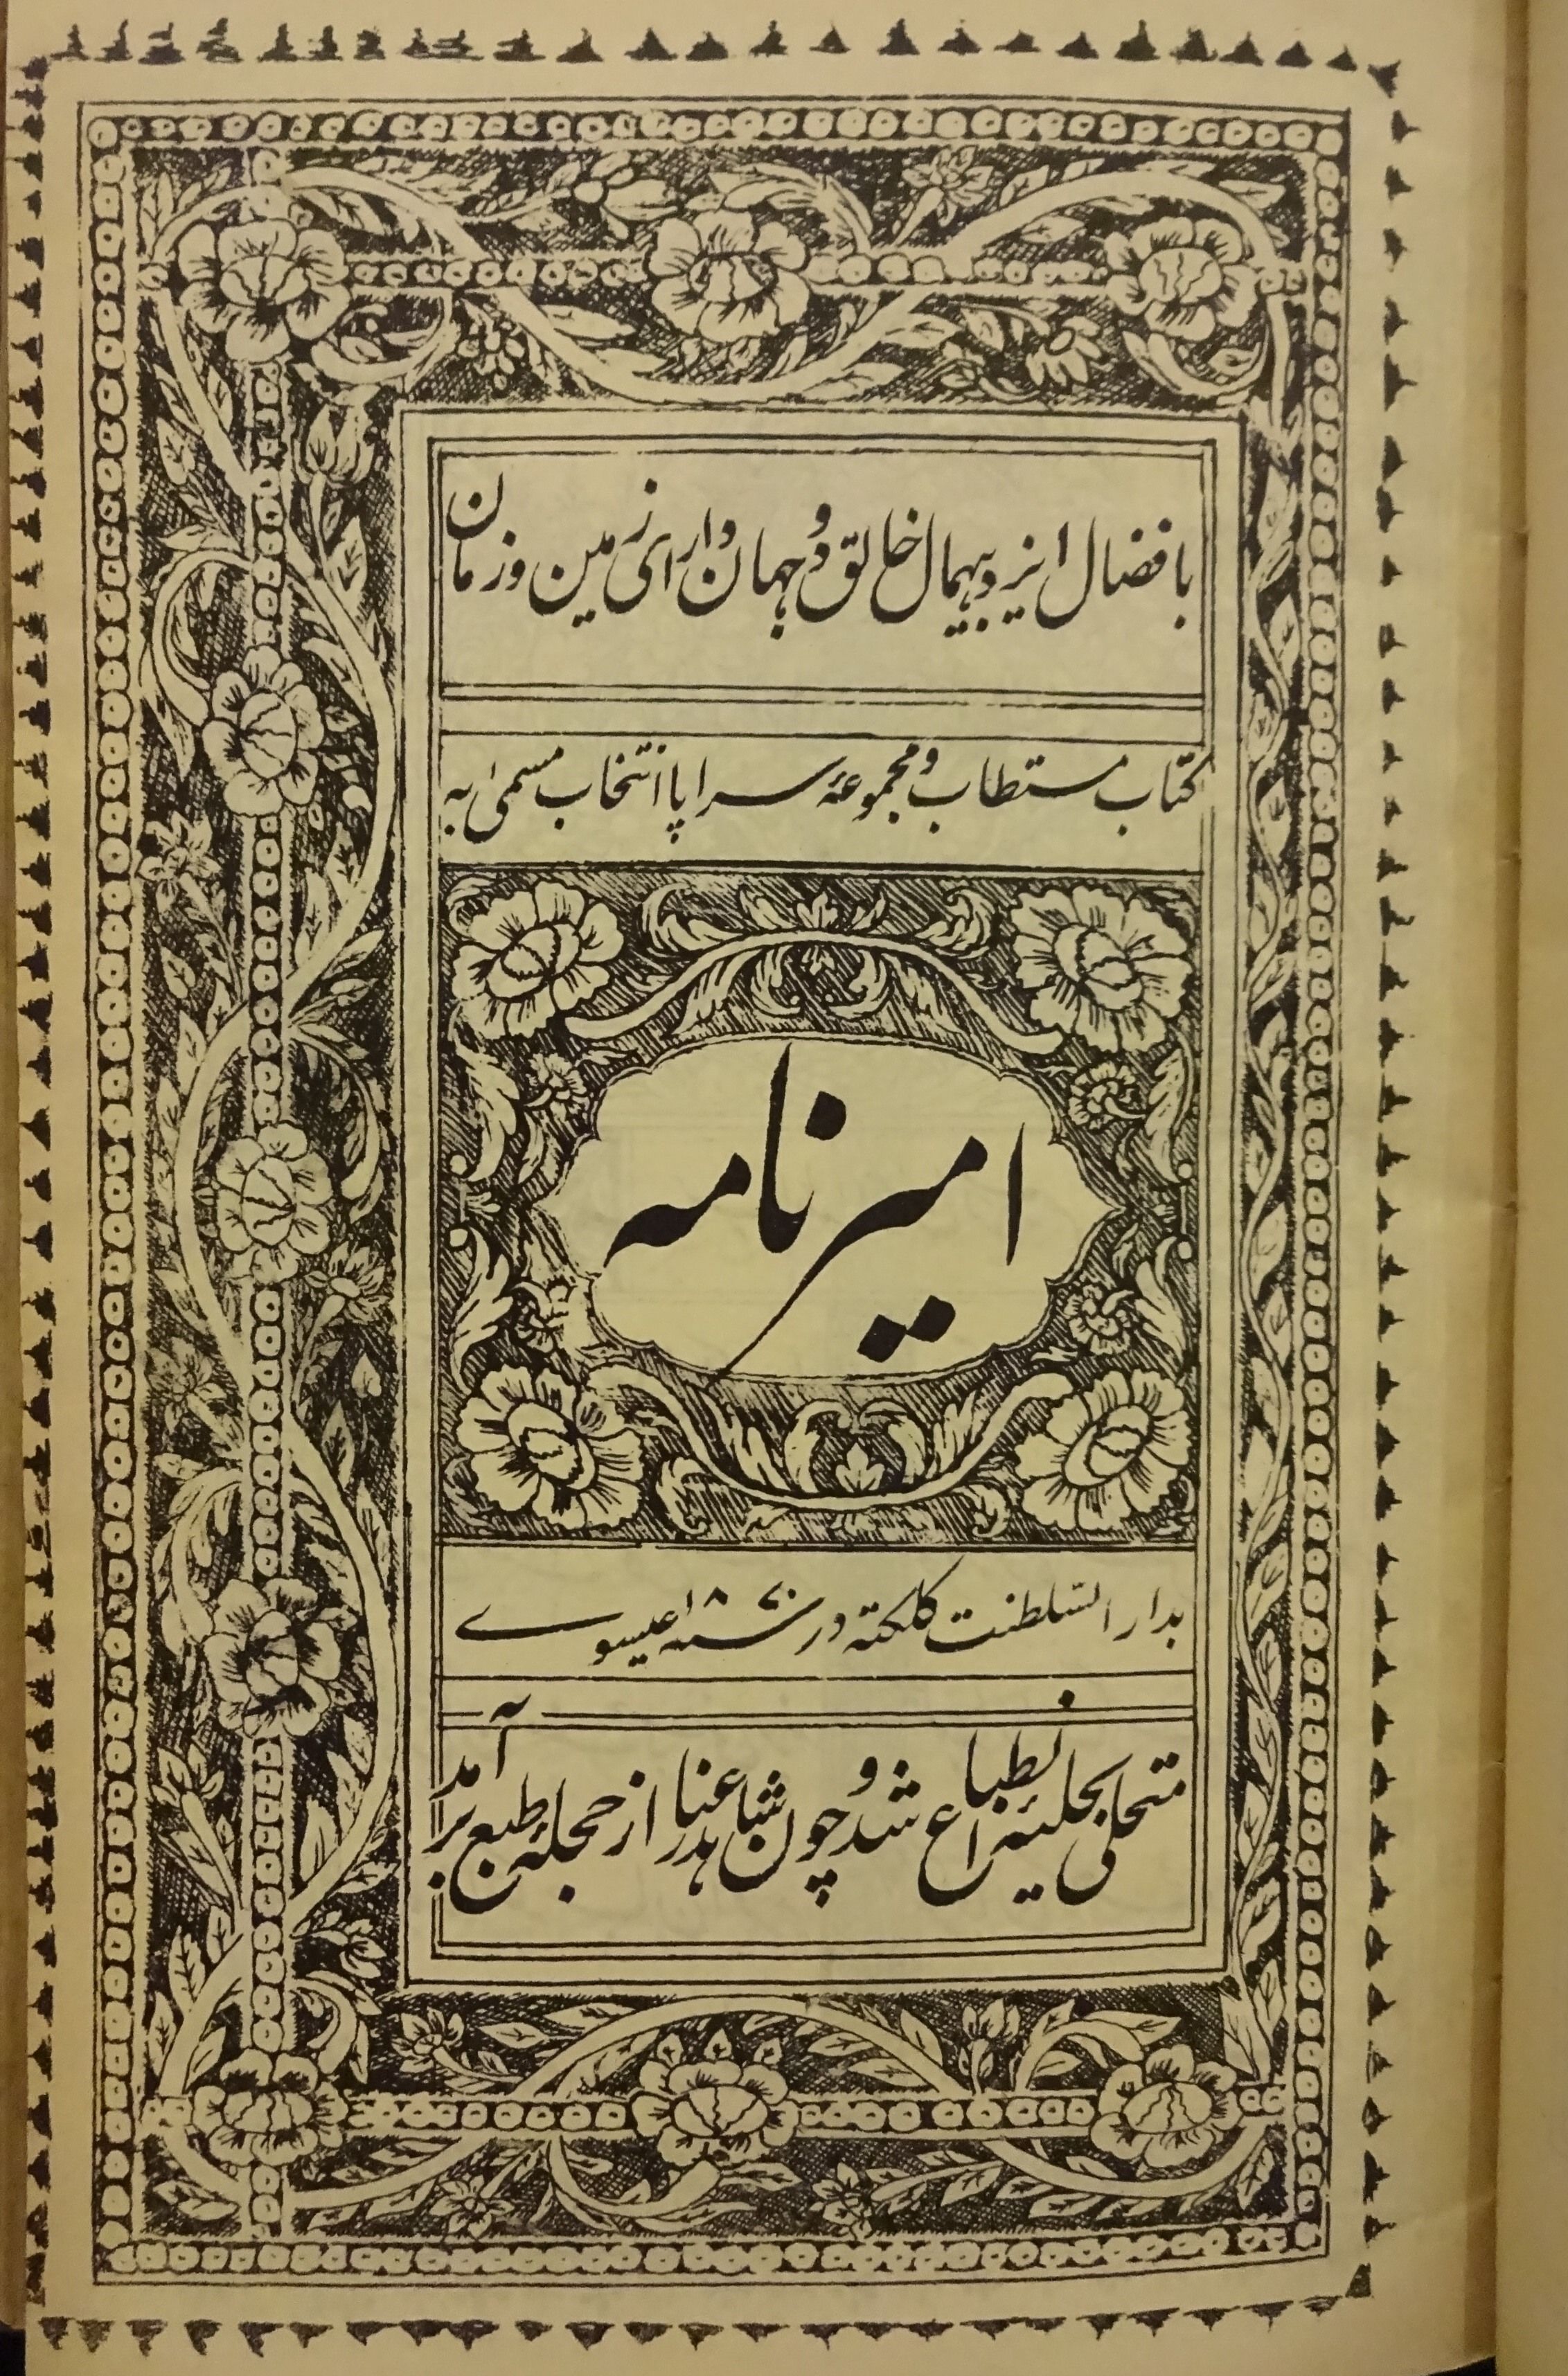 بافضال ایزد بیهمال خالق دو جهان دارای زمین و زمان
کتاب مستطاب و مجموعهٔ سراپا انتخاب مسمیٰ به
امیرنامه
بدار السلطنت کلکته در عیسوے
متحلی بحلیهٔ انطباع شد و چون شاهد رعنا از حجلهٔ طبع برآمد